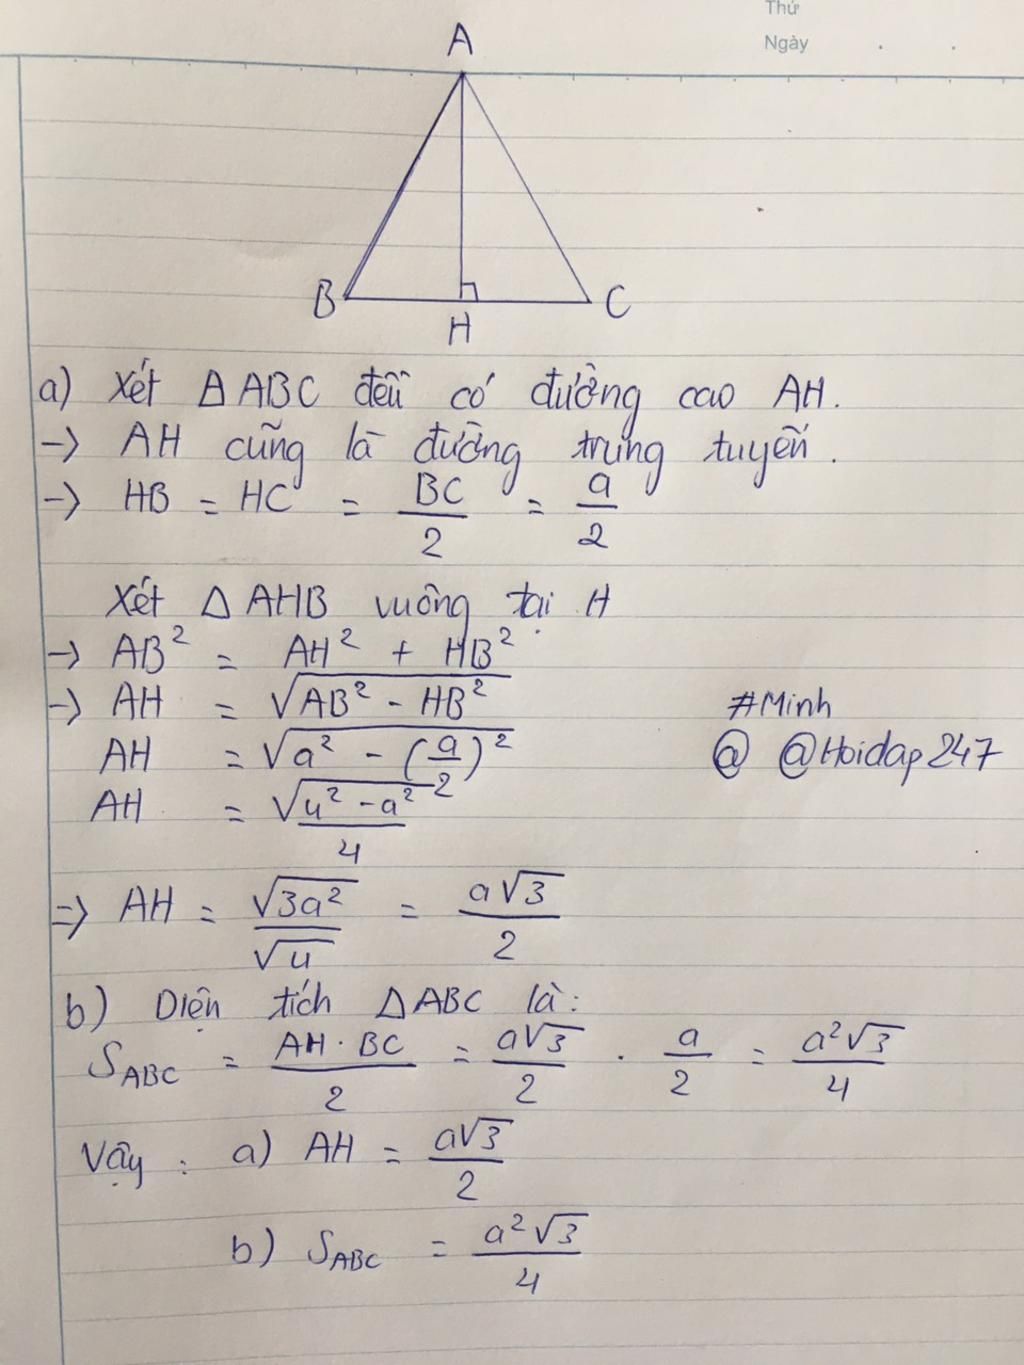 Thứ
Ngày
A
B
H
C
a) Xét ΔABC đều có đường cao AH.
→ AH cũng là đường trung tuyến.
→ HB = HC = BC/2 = a/2
Xét ΔAHB vuông tại H
→ AB² = AH² + HB²
→ AH = √(AB² - HB²)
#Minh
AH = √(a² - (a/2)²)
@ @Hoidap247
AH = √(4² - a²)/4
⇒ AH = √(3a²)/√4 = a√3/2
b) Diện tích ΔABC là:
S_ABC = AH . BC/2 = a√3/2 . a/2 = a²√3/4
Vậy : a) AH = a√3/2
b) S_ABC = a²√3/4